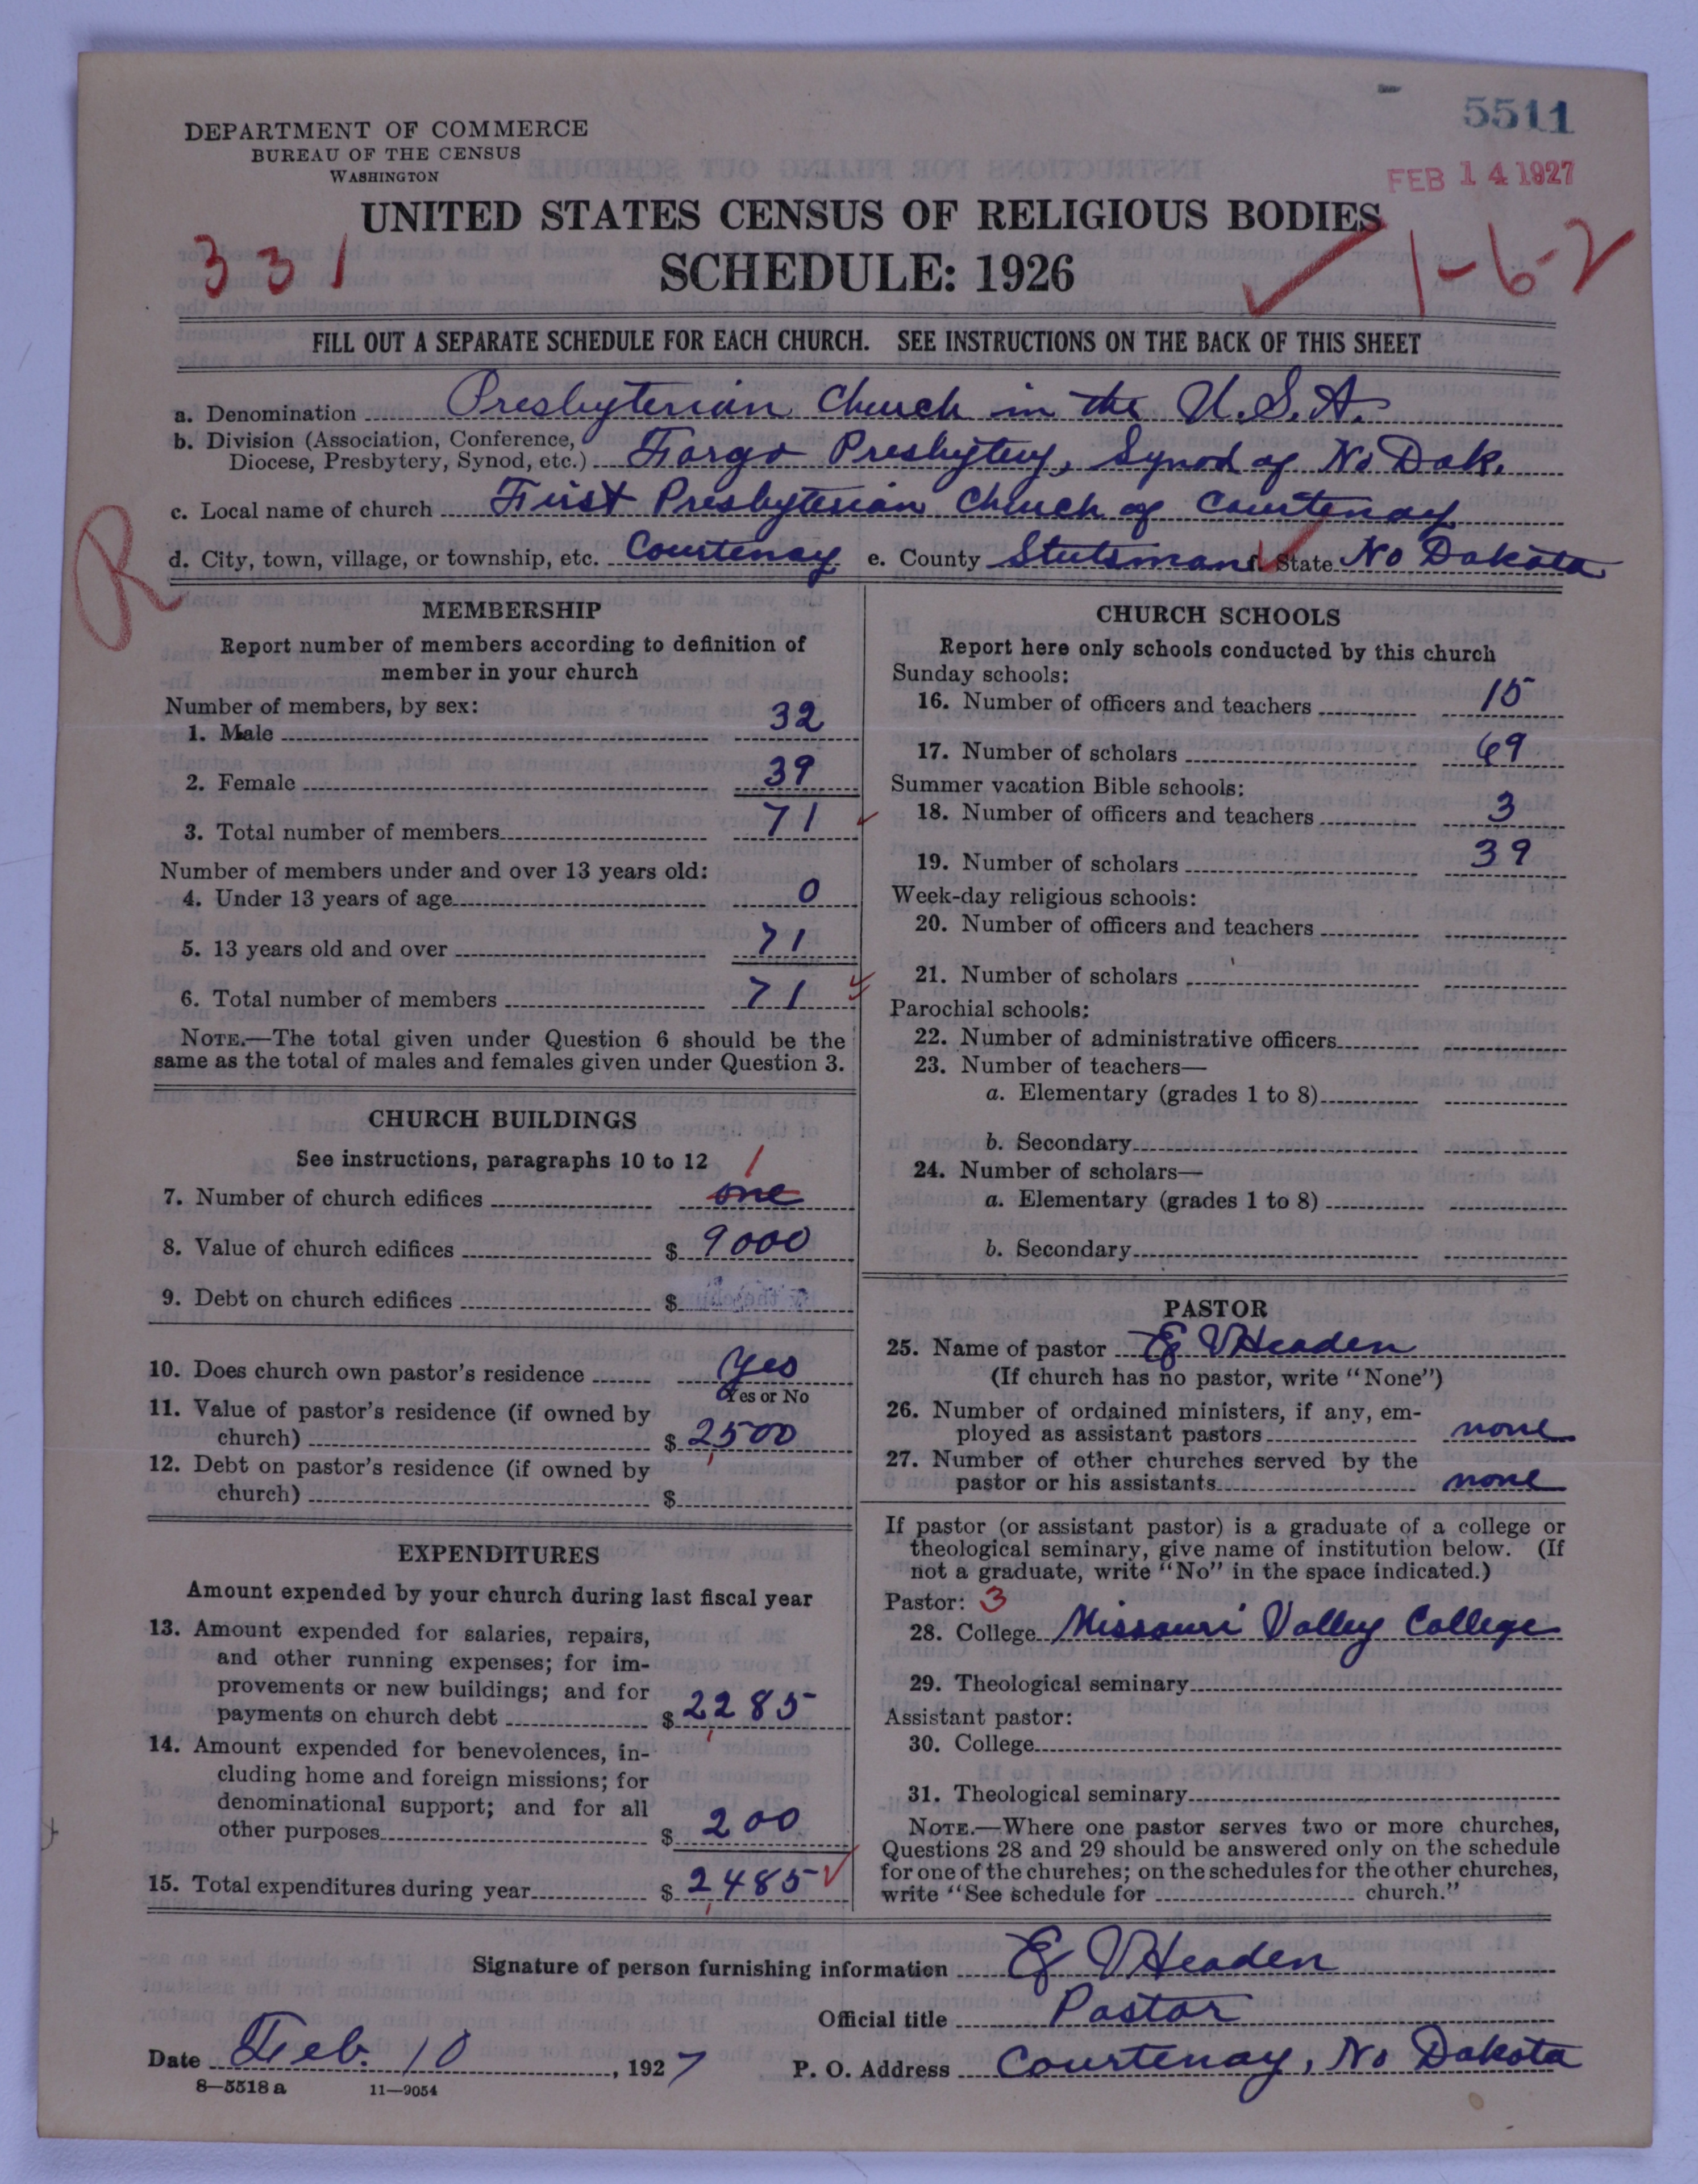 5511
DEPARTMENT OF COMMERCE
BUREAU OF THE CENSUS
WASHINGTON
FEB 14 1927
UNITED STATES CENSUS OF RELIGIOUS BODIES
331
SCHEDULE: 1926
1-6-2
FILL OUT A SEPARATE SCHEDULE FOR EACH CHURCH. SEE INSTRUCTIONS ON THE BACK OF THIS SHEET
a. Denomination Presbyterian Church in the U.S.A.
b. Division (Association, Conference,
Diocese, Presbytery, Synod, etc.) Fargo Presbytery, Synod of No Dak.
c. Local name of church First Presbyterian Church of Courtenay
R
d. City, town, village, or township, etc. Courtenay e. County Stutsman f. State No Dakota
MEMBERSHIP
Report number of members according to definition of
member in your church
Number of members, by sex:
1. Male 32
2. Female 39
3. Total number of members 71
Number of members under and over 13 years old:
4. Under 13 years of age 0
5. 13 years old and over 71
6. Total number of members 71
NOTE.—The total given under Question 6 should be the
same as the total of males and females given under Question 3.
CHURCH BUILDINGS
See instructions, paragraphs 10 to 12
1
7. Number of church edifices one
8. Value of church edifices $ 9000
9. Debt on church edifices $
10. Does church own pastor's residence Yes
Yes or No
11. Value of pastor's residence (if owned by
church) $ 2500
12. Debt on pastor's residence (if owned by
church) $
EXPENDITURES
Amount expended by your church during last fiscal year
13. Amount expended for salaries, repairs,
and other running expenses; for im-
provements or new buildings; and for
payments on church debt $ 2285
14. Amount expended for benevolences, in-
cluding home and foreign missions; for
denominational support; and for all
other purposes $ 200
15. Total expenditures during year $ 2485
CHURCH SCHOOLS
Report here only schools conducted by this church
Sunday schools:
16. Number of officers and teachers 15
17. Number of scholars 69
Summer vacation Bible schools:
18. Number of officers and teachers 3
19. Number of scholars 39
Week-day religious schools:
20. Number of officers and teachers
21. Number of scholars
Parochial schools:
22. Number of administrative officers
23. Number of teachers—
a. Elementary (grades 1 to 8)
b. Secondary
24. Number of scholars—
a. Elementary (grades 1 to 8)
b. Secondary
PASTOR
25. Name of pastor E V Headen
(If church has no pastor, write "None")
26. Number of ordained ministers, if any, em-
ployed as assistant pastors none
27. Number of other churches served by the
pastor or his assistants none
If pastor (or assistant pastor) is a graduate of a college or
theological seminary, give name of institution below. (If
not a graduate, write "No" in the space indicated.)
Pastor: 3
28. College Missouri Valley College
29. Theological seminary
Assistant pastor:
30. College
31. Theological seminary
NOTE.—Where one pastor serves two or more churches,
Questions 28 and 29 should be answered only on the schedule
for one of the churches; on the schedules for the other churches,
write "See schedule for church."
Signature of person furnishing information E V Headen
Official title Pastor
Date Feb. 10, 1927 P. O. Address Courtenay, No Dakota
8—5518 a 11—9054